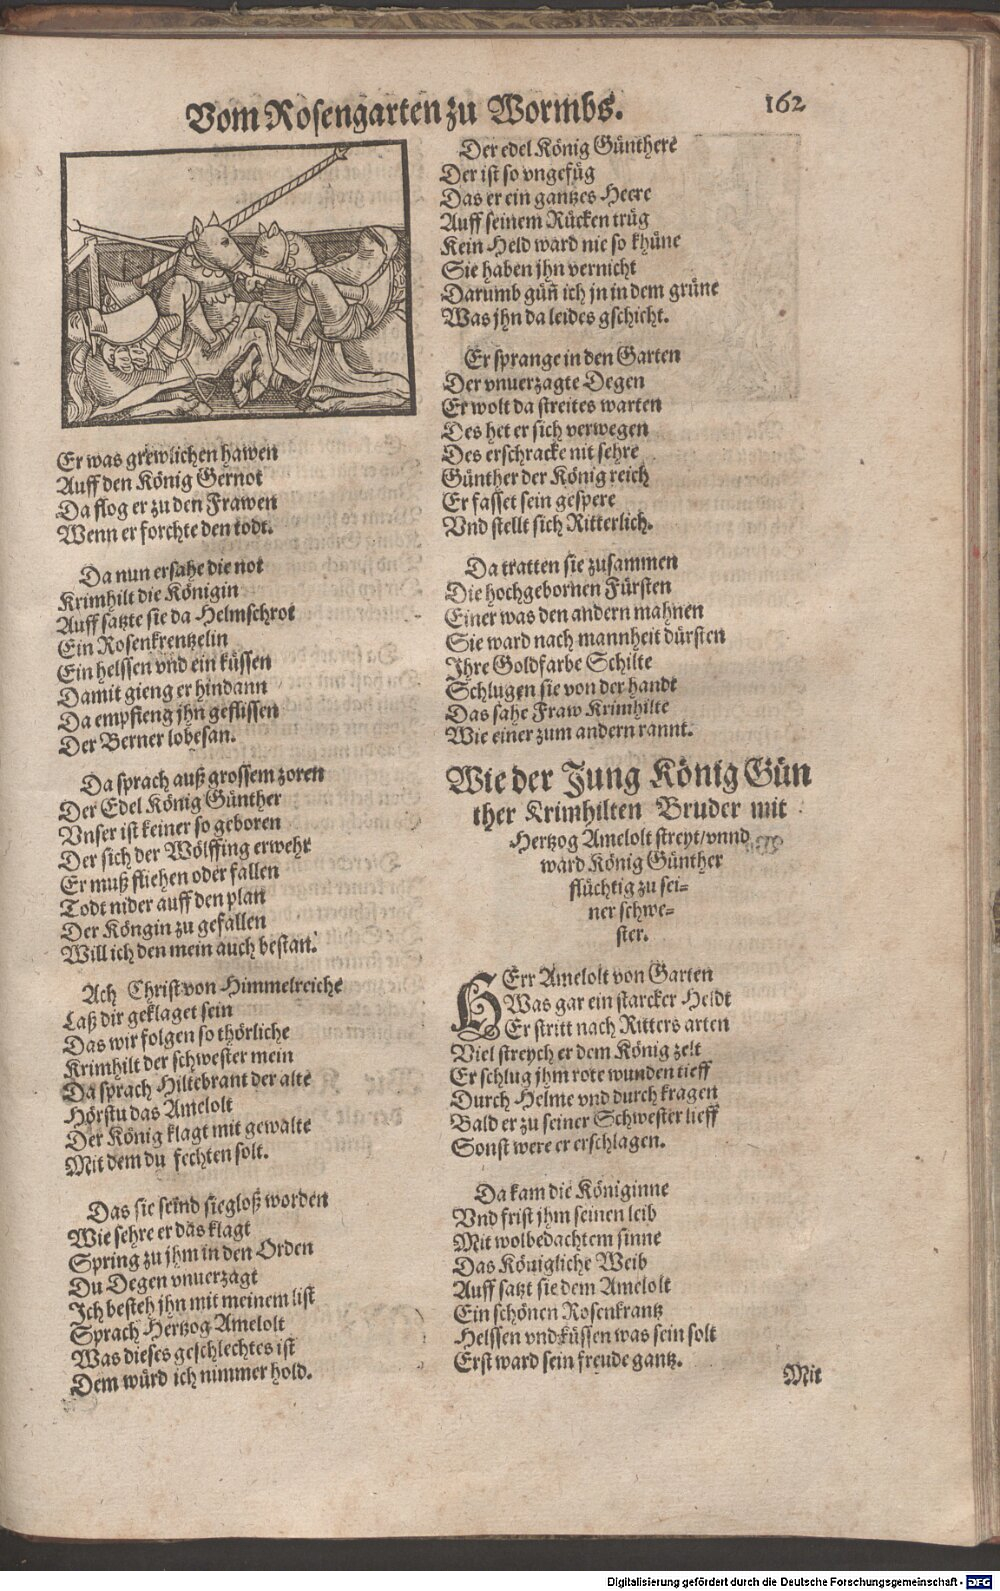 Vom Rosengarten zu Wormbs.
162
Er was grewlichen hawen
Auff den König Gernot
Da flog er zu den Frawen
Wenn er forchte den todt.
Da nun ersahe die not
Krimhilt die Königin
Auff satzte sie da Helmschrot
Ein Rosenkrentzelin
Ein helssen vnd ein küssen
Damit gieng er hindann
Da empfieng jhn geflissen
Der Berner lobesan.
Da sprach auß grossem zoren
Der Edel König Günther
Vnser ist keiner so geboren
Der sich der Wölffing erwehr
Er muß fliehen oder fallen
Todt nider auff den plan
Der Köngin zu gefallen
Will ich den mein auch bestan.
Ach Christ von Himmelreiche
Laß dir geklaget sein
Das wir folgen so thörliche
Krimhilt der schwester mein
Da sprach Hiltebrant der alte
Hörstu das Amelolt
Der König klagt mit gewalte
Mit dem du fechten solt.
Das sie seind siegloß worden
Wie sehre er das klagt
Spring zu jhm in den Orden
Du Degen vnuerzagt
Ich besteh jhn mit meinem list
Sprach Hertzog Amelolt
Was dieses geschlechtes ist
Dem würd ich nimmer hold.
Der edel König Günthere
Der ist so vngefüg
Das er ein gantzes Heere
Auff seinem Rücken trüg
Kein Held ward nie so khüne
Sie haben jhn vernicht
Darumb güñ ich jn in dem grüne
Was jhn da leides gschicht.
Er sprange in den Garten
Der vnuerzagte Degen
Er wolt da streites warten
Des het er sich verwegen
Des erschracke nit sehre
Günther der König reich
Er fasset sein gespere
Vnd stellt sich Ritterlich.
Da tratten sie zusammen
Die hochgebornen Fürsten
Einer was den andern mahnen
Sie ward nach mannheit dürsten
Ihre Goldfarbe Schilte
Schlugen sie von der handt
Das sahe Fraw Krimhilte
Wie einer zum andern rannt.
Wie der Jung König Gün
ther Krimhilten Bruder mit
Hertzog Amelolt streyt/vnnd
ward König Günther
flüchtig zu sei=
ner schwe=
ster.
HErr Amelolt von Garten
Was gar ein starcker Heldt
Er stritt nach Ritters arten
Viel streych er dem König zelt
Er schlug jhm rote wunden tieff
Durch Helme vnd durch kragen
Bald er zu seiner Schwester lieff
Sonst were er erschlagen.
Da kam die Königinne
Vnd frist jhm seinen leib
Mit wolbedachtem sinne
Das Köuigliche Weib
Auff satzt sie dem Amelolt
Ein schönen Rosenkrantz
Helssen vnd küssen was sein solt
Erst ward sein freude gantz.
Mit
Digitalisierung gefördert durch die Deutsche Forschungsgemeinschaft - DFG